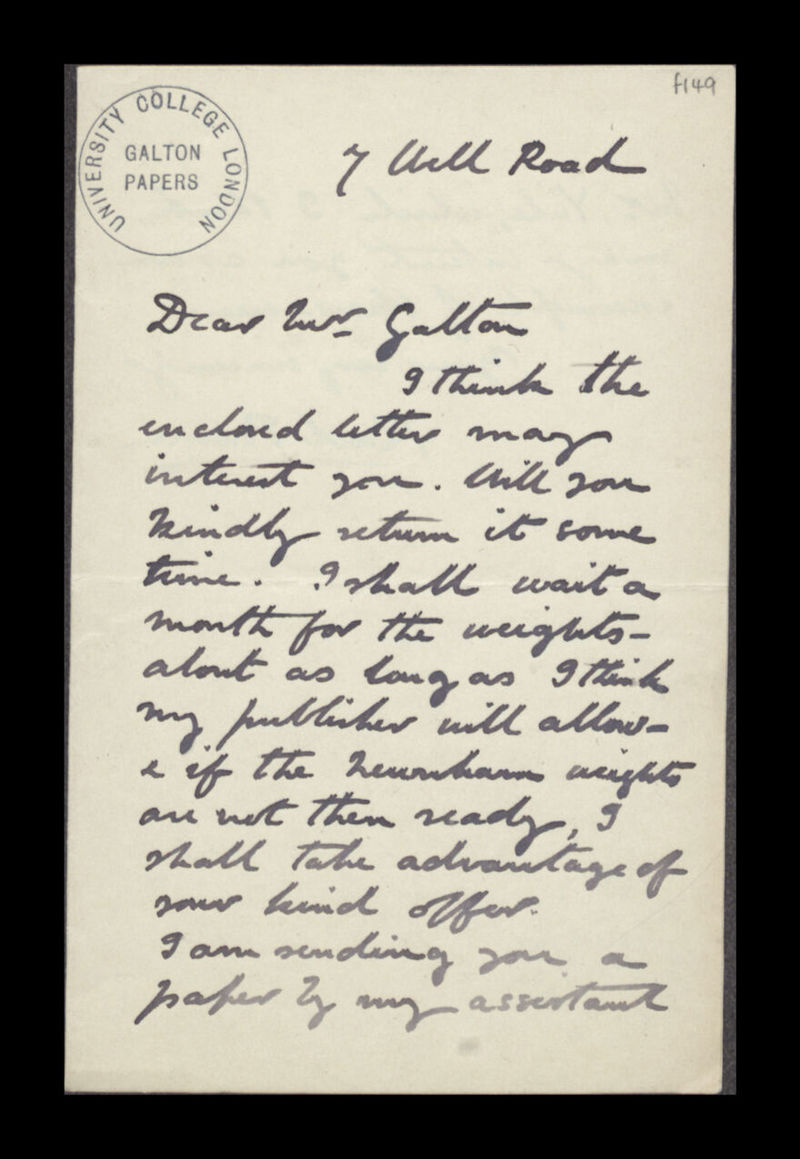 f149
UNIVERSITY COLLEGE LONDON
GALTON
PAPERS
7 Well Road
Dear Mr Galton
I think the
enclosed letter may
interest you. Will you
kindly return it some
time. I shall wait a
month for the weights -
about as long as I think
my publisher will allow -
& if the Newnham weights
are not then ready, I
shall take advantage of
your kind offer.
I am sending you a
paper by my assistant